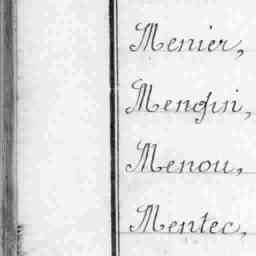 Menier,
Mengin,
Menou,
Mentec,